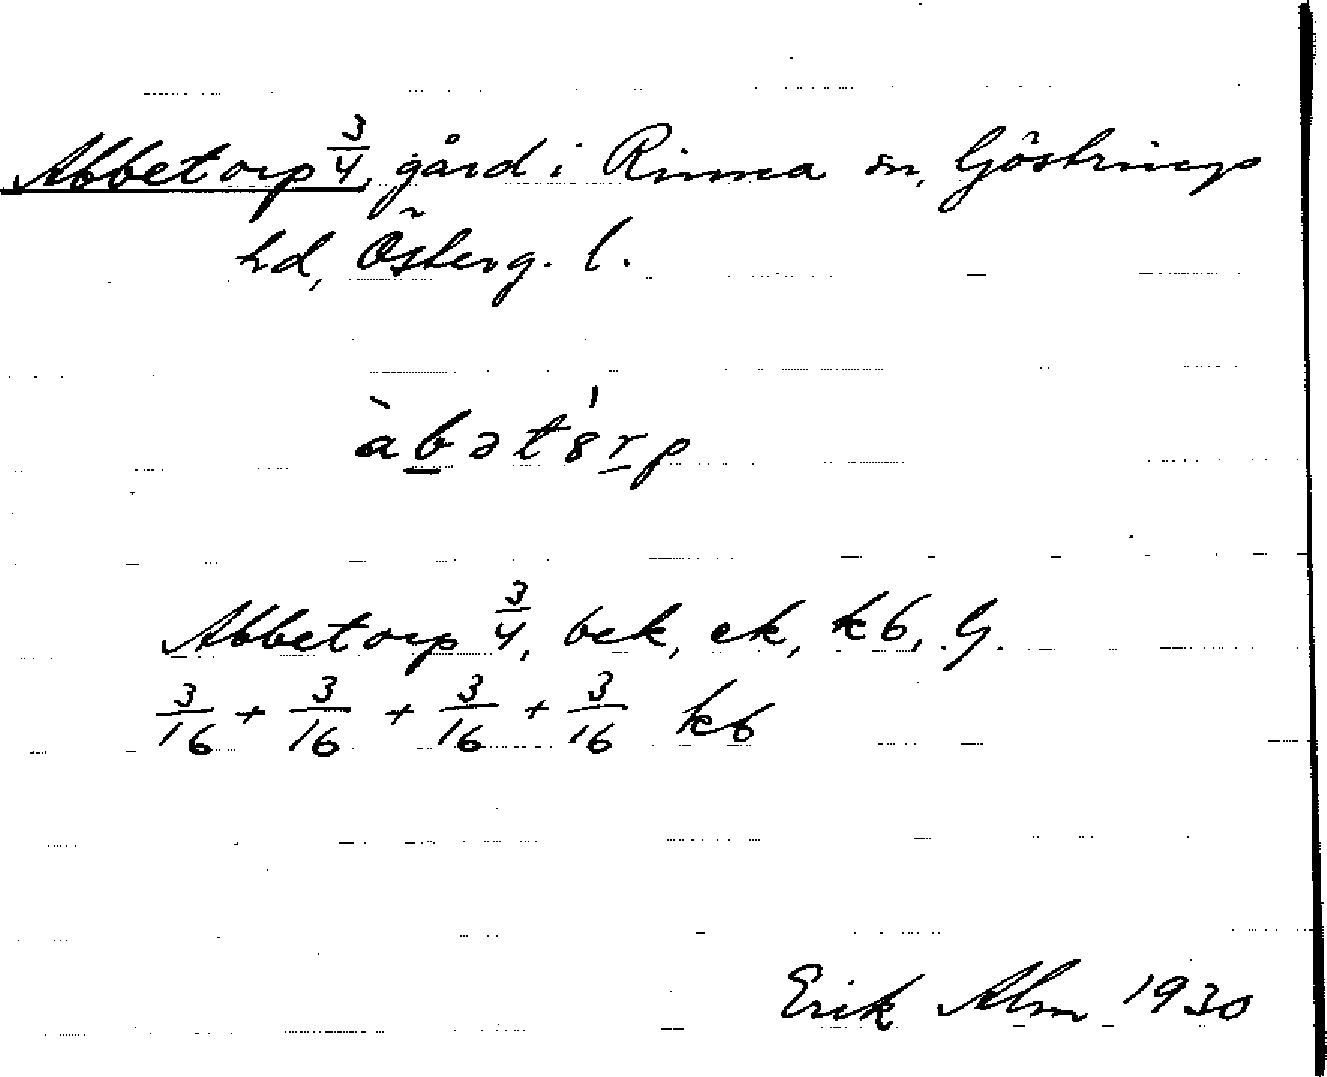 Abbetorp 3/4, gård i Rinna sn, Göstrings
hd, Österg. l.
àbət8́rp
Abbetorp 3/4, bek, ek, kb, G.
3/16 + 3/16 + 3/16 + 3/16 kb
Erik Alm 1930